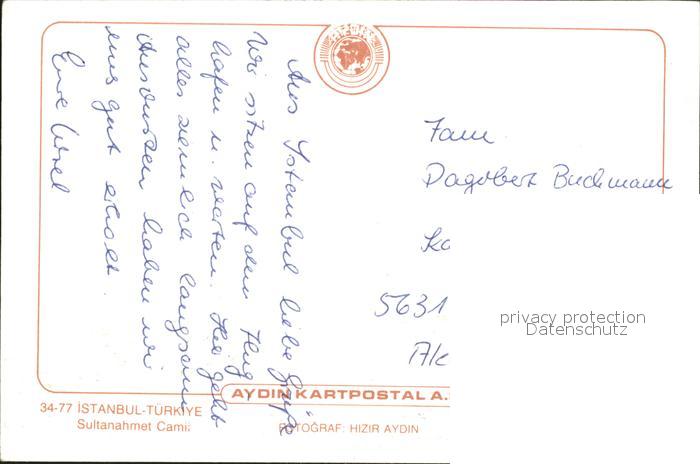 Aus Istanbul liebe Grüße
Wir sitzen auf dem Flug
hafen u. warten. Hier geht
alles ziemlich langsam
Ansonsten haben wir
uns gut erholt.
Eure
Fam
Dagobert Buchmann
Ko
5631
privacy protection
Datenschutz
AYDIN KARTPOSTAL A.
34-77 İSTANBUL-TÜRKİYE
Sultanahmet Camii
FOTOĞRAF: HIZIR AYDIN